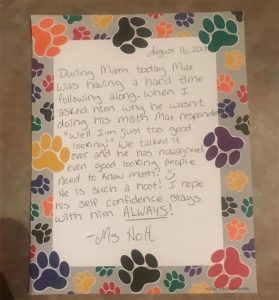 August 16, 2017
During Math today Max
was having a hard time
following along. When I
asked him why he wasn't
doing his math Max responded
"Well I'm just too good
looking!" We talked it
over and he has now agreed
even good looking people
need to know math!
He is such a hoot! I hope
his self confidence stays
with him ALWAYS!
-Ms Nott